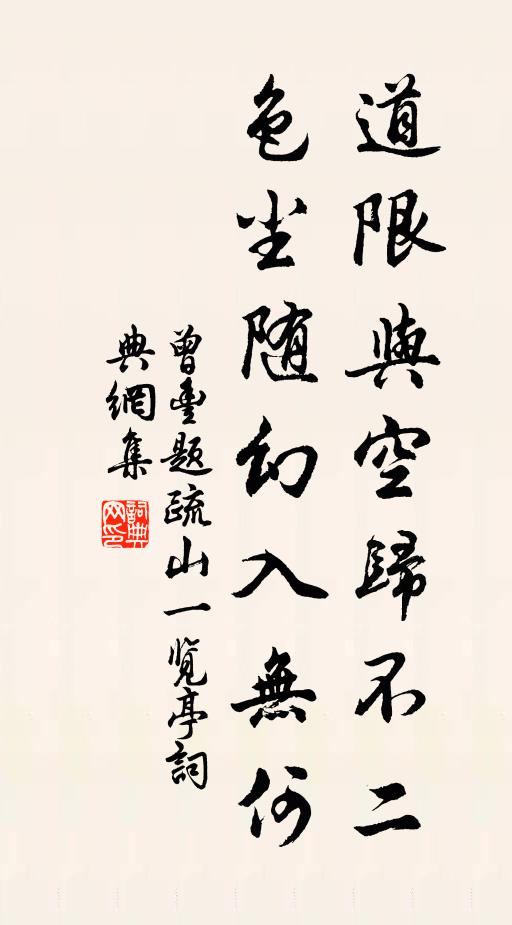 道限與空歸不二
色尘随幻入無何
曾豊题疏山一览亭詞
典網集
詞典网印